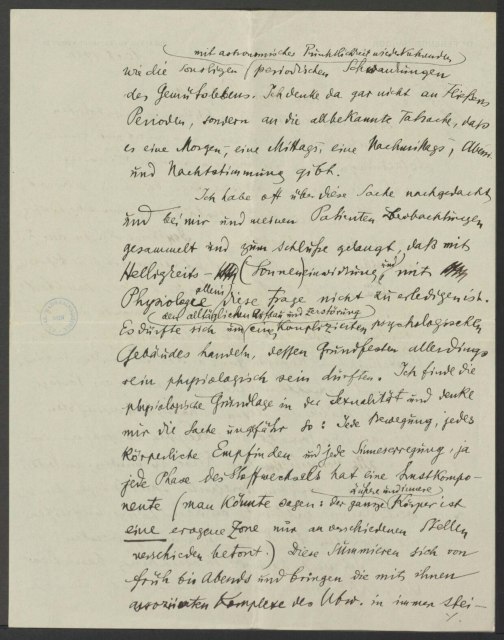 mit astronomischer Pünktlichkeit wiederkehrenden
wie die sonstigen (periodischen Schwankungen
des Gemütslebens. Ich denke da gar nicht an Fließens
Perioden, sondern an die allbekannte Tatsache, daß
es eine Morgen-, eine Mittags-, eine Nachmittags-, Abend-
und Nachtstimmung gibt.
Ich habe oft über diese Sache nachgedacht
und bei mir und meinen Patienten Beobachtungen
gesammelt und zum Schluße gelangt, daß mit
Helligkeits- (Sonnen)einwirkung und mit
Physiologie allein diese Frage nicht zu erledigen ist.
den alltäglichen Aufbau und Zerstörung
Es dürfte sich um eines komplizierten psychologischen
Gebäudes handeln, dessen Grundfesten allerdings
rein physiologisch sein dürften. Ich finde die
physiologische Grundlage in der Sexualität und denke
mir die Sache ungefähr so: Jede Bewegung, jedes
körperliche Empfinden und jede Sinneserregung, ja
jede Phase des Stoffwechsels hat eine Lustkompo-
äußere und innere
nente (man könnte sagen: der ganze Körper ist
eine erogene Zone nur an verschiedenen Stellen
verschieden betont.) Diese summieren sich von
früh bis Abends und bringen die mit ihnen
assoziierten Komplexe des Ubw. in immer stei-